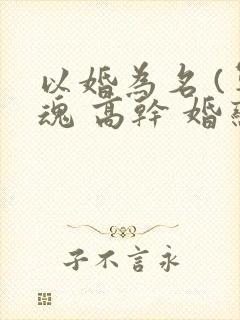 以婚為名 (
魂 高幹 婚
子不言永